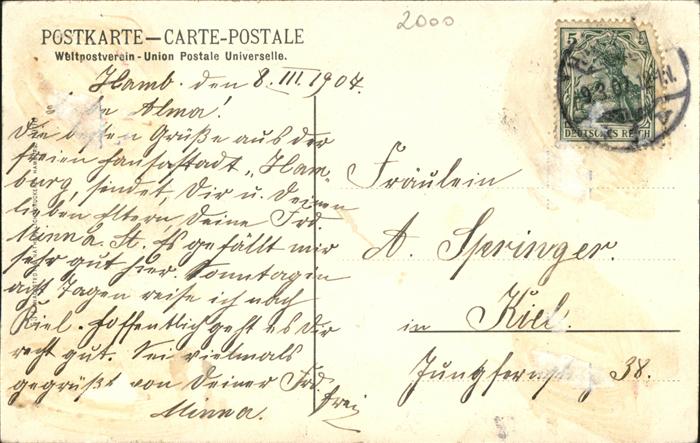 2000
POSTKARTE — CARTE-POSTALE
Weltpostverein - Union Postale Universelle.
Hamb. den 8. III. 1907.
Alma!
Die besten Grüße aus der
freien Hansastadt „Ham-
burg, sendet, Dir u. Deinen
lieben Eltern, Deine Frd.
Minna. St. Es gefällt mir
sehr gut hier. Sonntag in
acht Tagen reise ich nach
Kiel. Hoffentlich geht es Dir
recht gut. Sei vielmals
gegrüßt von Deiner Frd.
Minna.
frei
5
DEUTSCHES REICH
9.3.07
Fräulein
A. Springer.
in Kiel.
38.